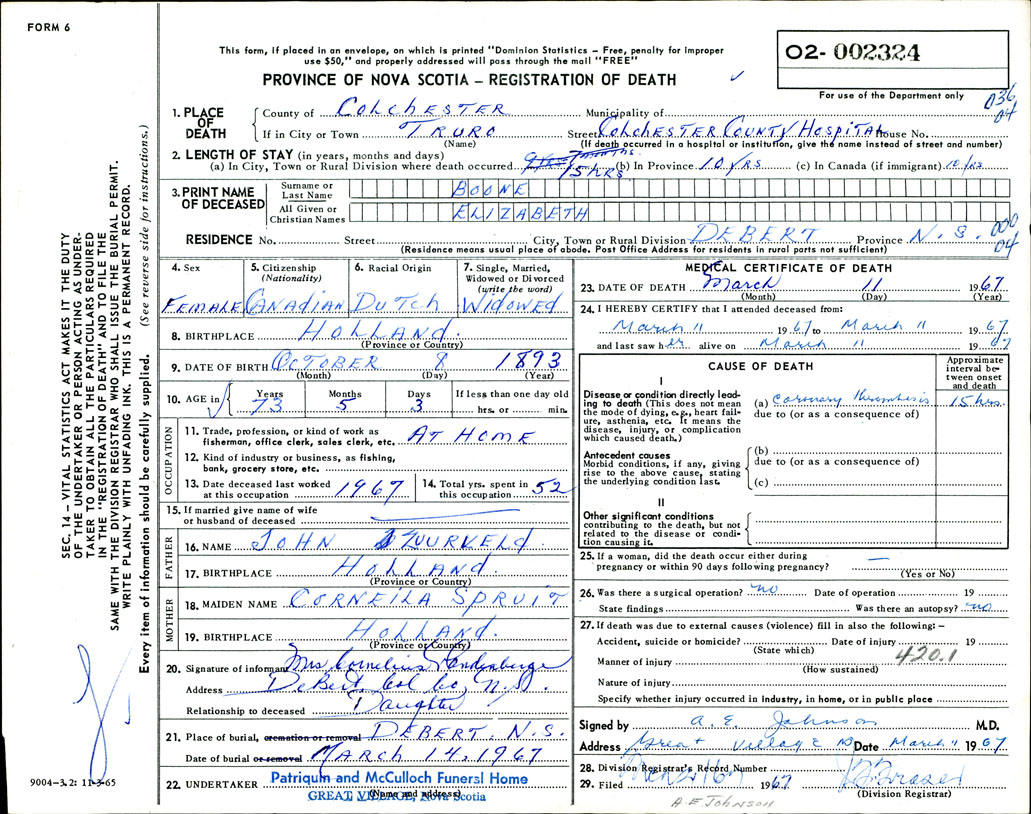 FORM 6
This form, if placed in an envelope, on which is printed "Dominion Statistics – Free, penalty for improper
use $50," and properly addressed will pass through the mail "FREE"
PROVINCE OF NOVA SCOTIA – REGISTRATION OF DEATH ✓
02- 002324
For use of the Department only
036
04
1. PLACE OF DEATH { County of COLCHESTER Municipality of
If in City or Town TRURO (Name) Street COLCHESTER COUNTY HOSPITAL House No.
(If death occurred in a hospital or institution, give the name instead of street and number)
2. LENGTH OF STAY (in years, months and days)
(a) In City, Town or Rural Division where death occurred 15 hrs (b) In Province 10 YRS (c) In Canada (if immigrant) 10 yrs
3. PRINT NAME OF DECEASED
Surname or Last Name BOONE
All Given or Christian Names ELIZABETH
000
04
RESIDENCE No. Street City, Town or Rural Division DEBERT Province N.S.
(Residence means usual place of abode. Post Office Address for residents in rural parts not sufficient)
4. Sex FEMALE
5. Citizenship (Nationality) CANADIAN
6. Racial Origin DUTCH
7. Single, Married, Widowed or Divorced (write the word) WIDOWED
8. BIRTHPLACE HOLLAND.
(Province or Country)
9. DATE OF BIRTH OCTOBER 8 1893
(Month) (Day) (Year)
10. AGE in { Years 73 Months 5 Days 3 If less than one day old hrs. or min.
OCCUPATION
11. Trade, profession, or kind of work as
fisherman, office clerk, sales clerk, etc. AT HOME
12. Kind of industry or business, as fishing,
bank, grocery store, etc.
13. Date deceased last worked
at this occupation 1967
14. Total yrs. spent in
this occupation 52
15. If married give name of wife
or husband of deceased
FATHER
16. NAME JOHN ZUURVELD
17. BIRTHPLACE HOLLAND.
(Province or Country)
MOTHER
18. MAIDEN NAME CORNEILA SPRUIT
19. BIRTHPLACE HOLLAND.
(Province or Country)
20. Signature of informant Mrs Cornelius Vandenberge
Address DeBert, Col Co, N.S.
Relationship to deceased Daughter
21. Place of burial, cremation or removal DEBERT. N.S.
Date of burial or removal MARCH 14, 1967
22. UNDERTAKER Patriquin and McCulloch Funeral Home
(Name and address)
GREAT VILLAGE, Nova Scotia
MEDICAL CERTIFICATE OF DEATH
23. DATE OF DEATH March 11 1967
(Month) (Day) (Year)
24. I HEREBY CERTIFY that I attended deceased from:
March 11 1967 to March 11 1967
and last saw her alive on March 11 1967
CAUSE OF DEATH
Approximate interval between onset and death
I
Disease or condition directly leading to death (This does not mean the mode of dying, e.g., heart failure, asthenia, etc. It means the disease, injury, or complication which caused death.)
(a) Coronary thrombosis 15 hrs.
due to (or as a consequence of)
Antecedent causes
Morbid conditions, if any, giving rise to the above cause, stating the underlying condition last.
(b)
due to (or as a consequence of)
(c)
II
Other significant conditions
contributing to the death, but not related to the disease or condition causing it.
25. If a woman, did the death occur either during
pregnancy or within 90 days following pregnancy? —
(Yes or No)
26. Was there a surgical operation? no Date of operation 19
State findings Was there an autopsy? no
27. If death was due to external causes (violence) fill in also the following: –
Accident, suicide or homicide? Date of injury 19
(State which)
420.1
Manner of injury
(How sustained)
Nature of injury
Specify whether injury occurred in industry, in home, or in public place
Signed by A. E. Johnson M.D.
Address Great Village NS Date March 11 1967
28. Division Registrar's Record Number
29. Filed 1967
(Division Registrar)
A E JOHNSON
SEC. 14 – VITAL STATISTICS ACT MAKES IT THE DUTY
OF THE UNDERTAKER OR PERSON ACTING AS UNDER-
TAKER TO OBTAIN ALL THE PARTICULARS REQUIRED
IN THE "REGISTRATION OF DEATH" AND TO FILE THE
SAME WITH THE DIVISION REGISTRAR WHO SHALL ISSUE THE BURIAL PERMIT.
WRITE PLAINLY WITH UNFADING INK. THIS IS A PERMANENT RECORD.
Every item of information should be carefully supplied. (See reverse side for instructions.)
9004-3.2: 11-3-65